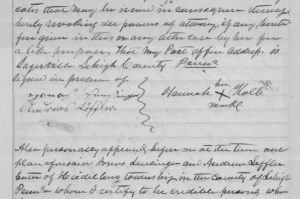 cate that may be issued in consequence thereof
hereby revoking all powers of attorney, if any, heretofore
given in this or any other case by her for
a like purpose. That my Post Office address is
Saegersville Lehigh County Penn'a
Signed in presence of
her
Hannah X Kolb
mark
Andrew Löffler
Also personally appeared before me at the time and
place aforesaid and Andrew Löffler
both of Heidelberg township in the county of Lehigh
Penn'a whom I certify to be credible persons who